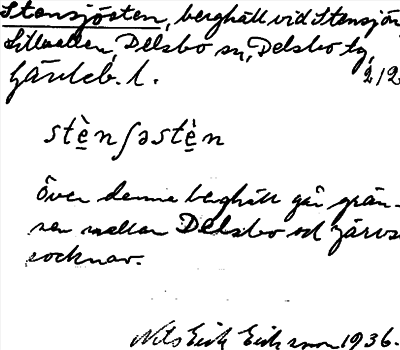 Stensjösten, berghäll vid Stensjön
Sillvallen, Delsbo sn, Delsbo tg,
Gävleb. l. 2/2
stè̠nʃəstè̠n
Över denna berghäll går grän-
sen mellan Delsbo och Järvsö
socknar.
Nils Erik Eriksson 1936.